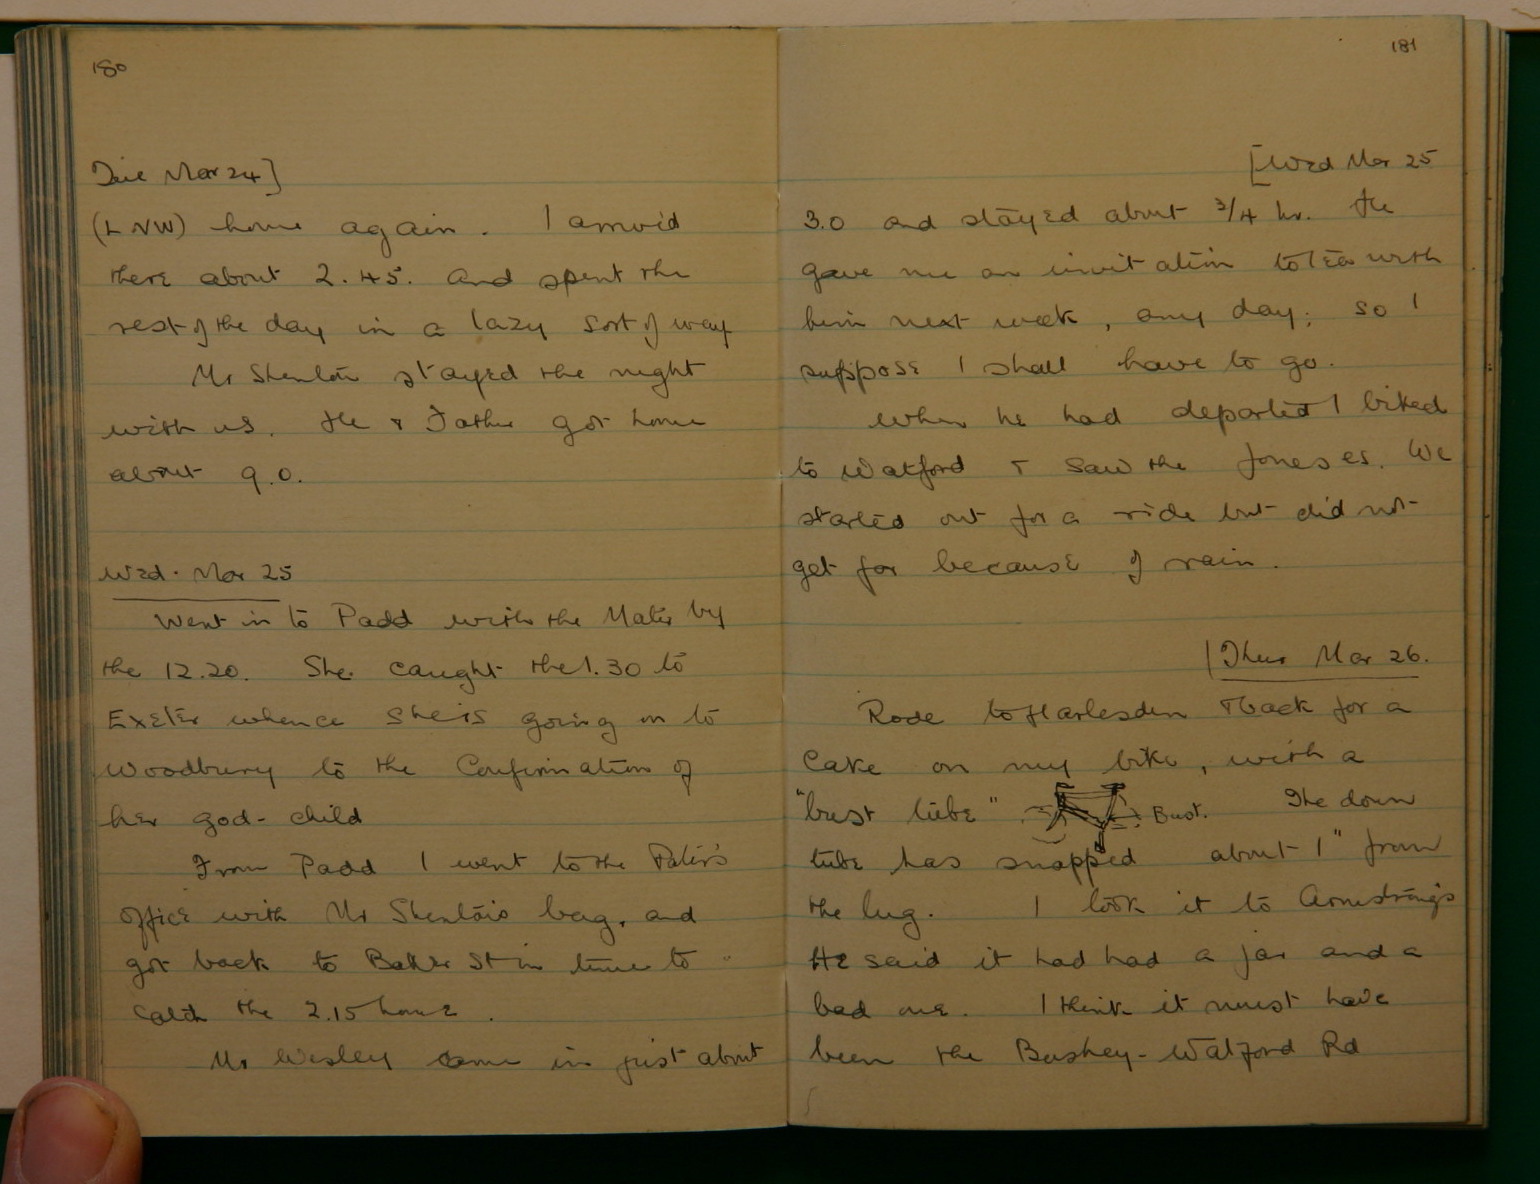 180
Tue Mar 24]
(LNW) home again. I arrived
there about 2.45. and spent the
rest of the day in a lazy sort of way
Mr Shenton stayed the night
with us. He & Father got home
about 9.0.
Wed. Mar 25
Went in to Padd with the Mater by
the 12.20. She caught the 1.30 to
Exeter whence she is going on to
Woodbury to the Confirmation of
her god-child
From Padd I went to the Pater's
office with Mr Shenton's bag, and
got back to Baker St in time to
catch the 2.15 home.
Mr Wesley came in just about
181
[Wed Mar 25
3.0 and stayed about 3/4 hr. He
gave me an invitation to tea with
him next week, any day; so I
suppose I shall have to go.
When he had departed I biked
to Watford & saw the Joneses. We
started out for a ride but did not
get far because of rain.
Thur Mar 26.
Rode to Harlesden & back for a
cake on my bike, with a
"bust tube" Bust. The down
tube has snapped about 1" from
the lug. I took it to Armstrong's
He said it had had a jar and a
bad one. I think it must have
been the Bushey-Watford Rd